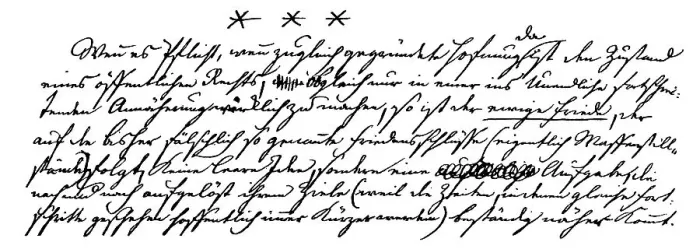 * * *
Wenn es Pflicht, wenn zugleich gegründete Hofnung da ist den Zustand
eines öffentlichen Rechts, obgleich nur in einer ins Unendliche fortschrei-
tenden Annäherung wirklich zu machen, so ist der ewige Friede, der
auf die bisher fälschlich so genannte Friedensschlüsse (eigentlich Waffenstill-
stände) folgt, keine leere Idee, sondern eine Aufgabe die
nach und nach aufgelöst ihrem Ziele (weil die Zeiten, in denen gleiche Fort-
schritte geschehen hoffentlich immer kürzer werden) beständig näher kommt.